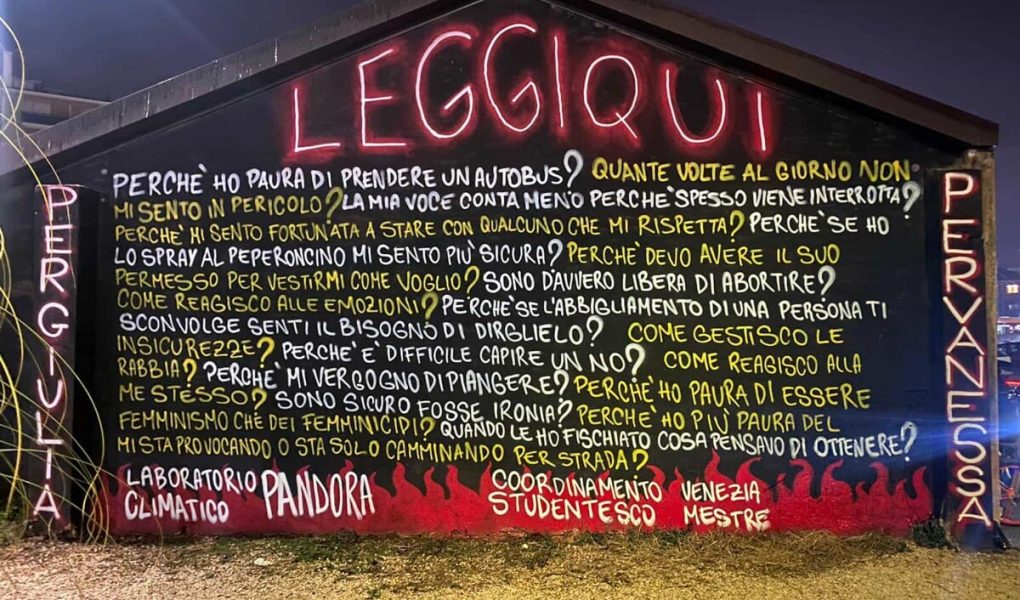 LEGGIQUI
PERCHÈ HO PAURA DI PRENDERE UN AUTOBUS? QUANTE VOLTE AL GIORNO NON
MI SENTO IN PERICOLO? LA MIA VOCE CONTA MENO PERCHÈ SPESSO VIENE INTERROTTA?
PERCHÈ MI SENTO FORTUNATA A STARE CON QUALCUNO CHE MI RISPETTA? PERCHÈ SE HO
LO SPRAY AL PEPERONCINO MI SENTO PIÙ SICURA? PERCHÈ DEVO AVERE IL SUO
PERMESSO PER VESTIRMI COME VOGLIO? SONO DAVVERO LIBERA DI ABORTIRE?
COME REAGISCO ALLE EMOZIONI? PERCHÈ SE L'ABBIGLIAMENTO DI UNA PERSONA TI
SCONVOLGE SENTI IL BISOGNO DI DIRGLIELO? COME GESTISCO LE
INSICUREZZE? PERCHÈ È DIFFICILE CAPIRE UN NO? COME REAGISCO ALLA
RABBIA? PERCHÈ MI VERGOGNO DI PIANGERE? PERCHÈ HO PAURA DI ESSERE
ME STESSO? SONO SICURO FOSSE IRONIA? PERCHÈ HO PIÙ PAURA DEL
FEMMINISMO CHE DEI FEMMINICIDI? QUANDO LE HO FISCHIATO COSA PENSAVO DI OTTENERE?
MI STA PROVOCANDO O STA SOLO CAMMINANDO PER STRADA?
LABORATORIO PANDORA
CLIMATICO
COORDINAMENTO VENEZIA
STUDENTESCO MESTRE
PERGIULIA
PERVANESSA